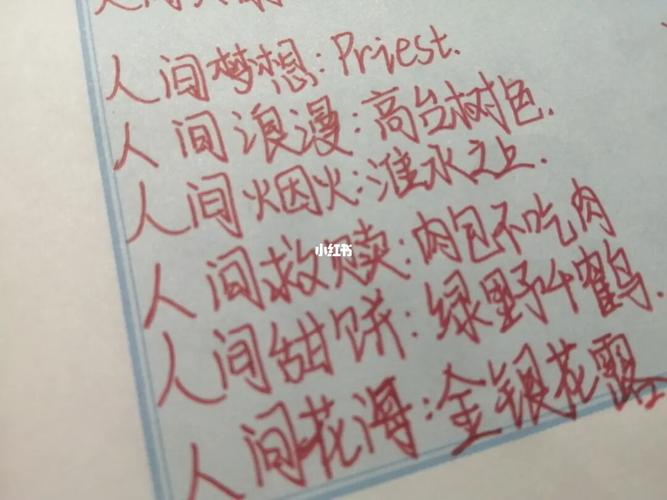 人间梦想:Priest.
人间浪漫:高台树色.
人间烟火:淮水之上.
人间救赎:肉包不吃肉
小红书
人间甜饼:绿野千鹤.
人间花海:金银花露